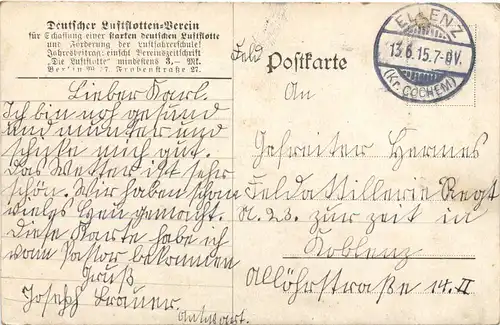 Deutscher Luftflotten-Verein
für Schaffung einer starken deutschen Luftflotte
und Förderung der Luftfahrerschule!
Jahresbeitrag: einschl Vereinszeitschrift
„Die Luftflotte“ mindestens 3,— Mk.
Berlin W. 57, Frobenstraße 27.
Lieber Karl.
Ich bin noch gesund
und munter und
schicke mich gut.
Das Wetter ist sehr
schön. Wir haben schon
vieles Heu gemacht.
Diese Karte habe ich
vom Pastor bekommen
Gruß
Joseph Brauer
Antwort.
Feld Postkarte
ELLENZ
13.6.15.7-8V.
(Kr. COCHEM)
An
Gefreiter Hermes
Feldattillerie Regt
N. 23. zur zeit in
Koblenz
Allöhrstraße 14. II